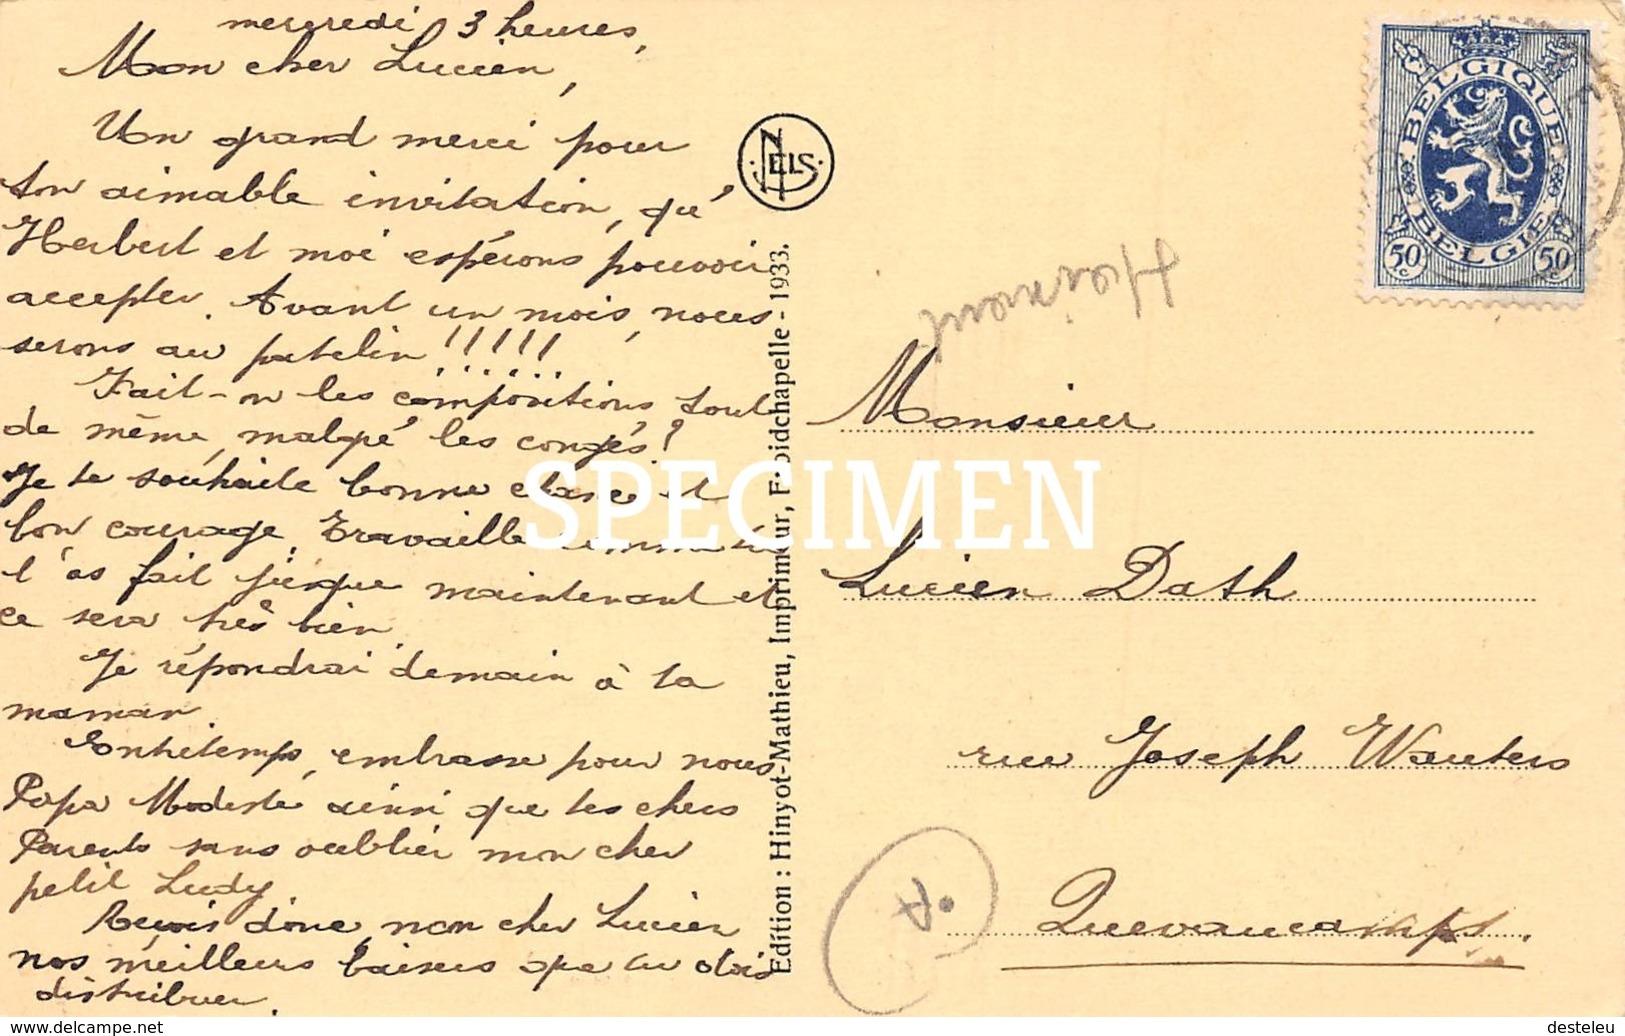 mercredi 3 heures,
Mon cher Lucien,
Un grand merci pour
ton aimable invitation, qu'
Herbert et moi espérons pouvoir
accepter. Avant un mois, nous
serons au patelin!!!!!
Fait-on les compositions tout
de même, malgré les congés?
Je te souhaite bonne chance et
bon courage. Travaille comme tu
l'as fait jusque maintenant et
ce sera très bien.
Je répondrai demain à ta
maman.
Entretemps, embrasse pour nous
Papa Modeste ainsi que tes chers
Parents sans oublier mon cher
petit Ludy.
Reçois donc, mon cher Lucien
nos meilleurs baisers que tu dois
distribuer.
NELS
Edition : Hinyot-Mathieu, Imprimeur, Froidchapelle - 1933.
BELGIQUE
BELGIË
50 c
50 c
Hainaut
Monsieur
Lucien Dath
rue Joseph Wauters
Quevaucamps.
A.
SPECIMEN
www.delcampe.net
desteleu